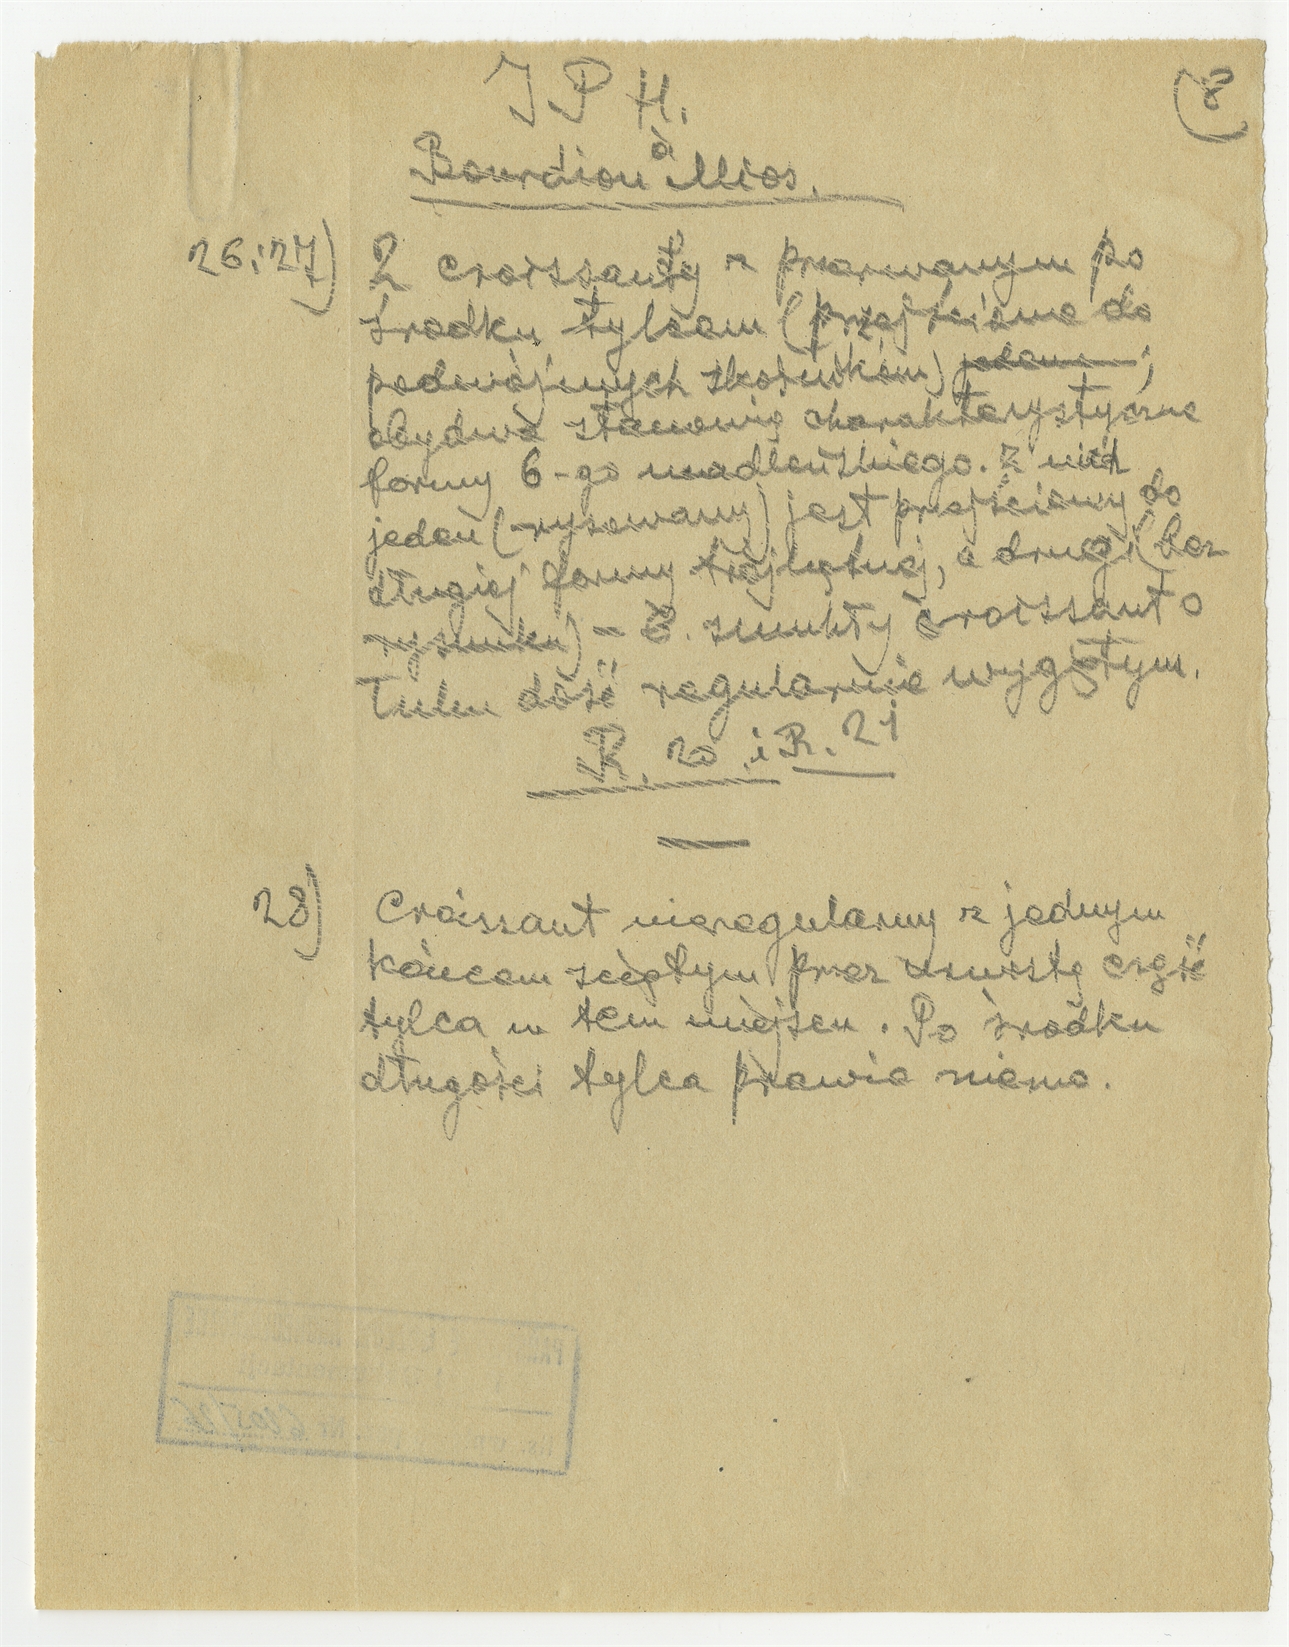 I P H.
8
Bourdiou à Mios.
26 i 27) 2 croissanty z przerwanym po
środku tylcem (przejściowe do
podwójnych zbrojników) jedena ;
obydwa stanowią charakterystyczne
formy 6-go madleńskiego. Z nich
jeden (rysowany) jest przejściowy do
długiej formy trójkątnej, a drugi (bez
rysunku) – b. smukły croissant o
łuku dość regularnie wygiętym.
R. 20 i R. 21
28) Croissant nieregularny z jednym
końcem ściętym przez usunistą część
tylca w tem miejscu. Po środku
długości tylca prawie niema.